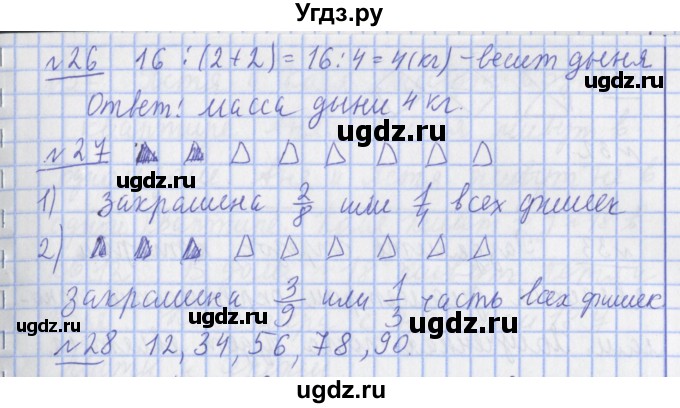 Угдз.ру
№26 16 : (2+2) = 16 : 4 = 4(кг) - весит дыня
Ответ: масса дыни 4 кг.
ugdz.ru ugdz.ru
№27
ugdz.ru
1) Закрашена 2/8 или 1/4 всех фишек
2)
ugdz.ru
Закрашена 3/9 или 1/3 часть всех фишек
ugdz.ru ugdz.ru
№28 12, 34, 56, 78, 90.
ugdz.ru